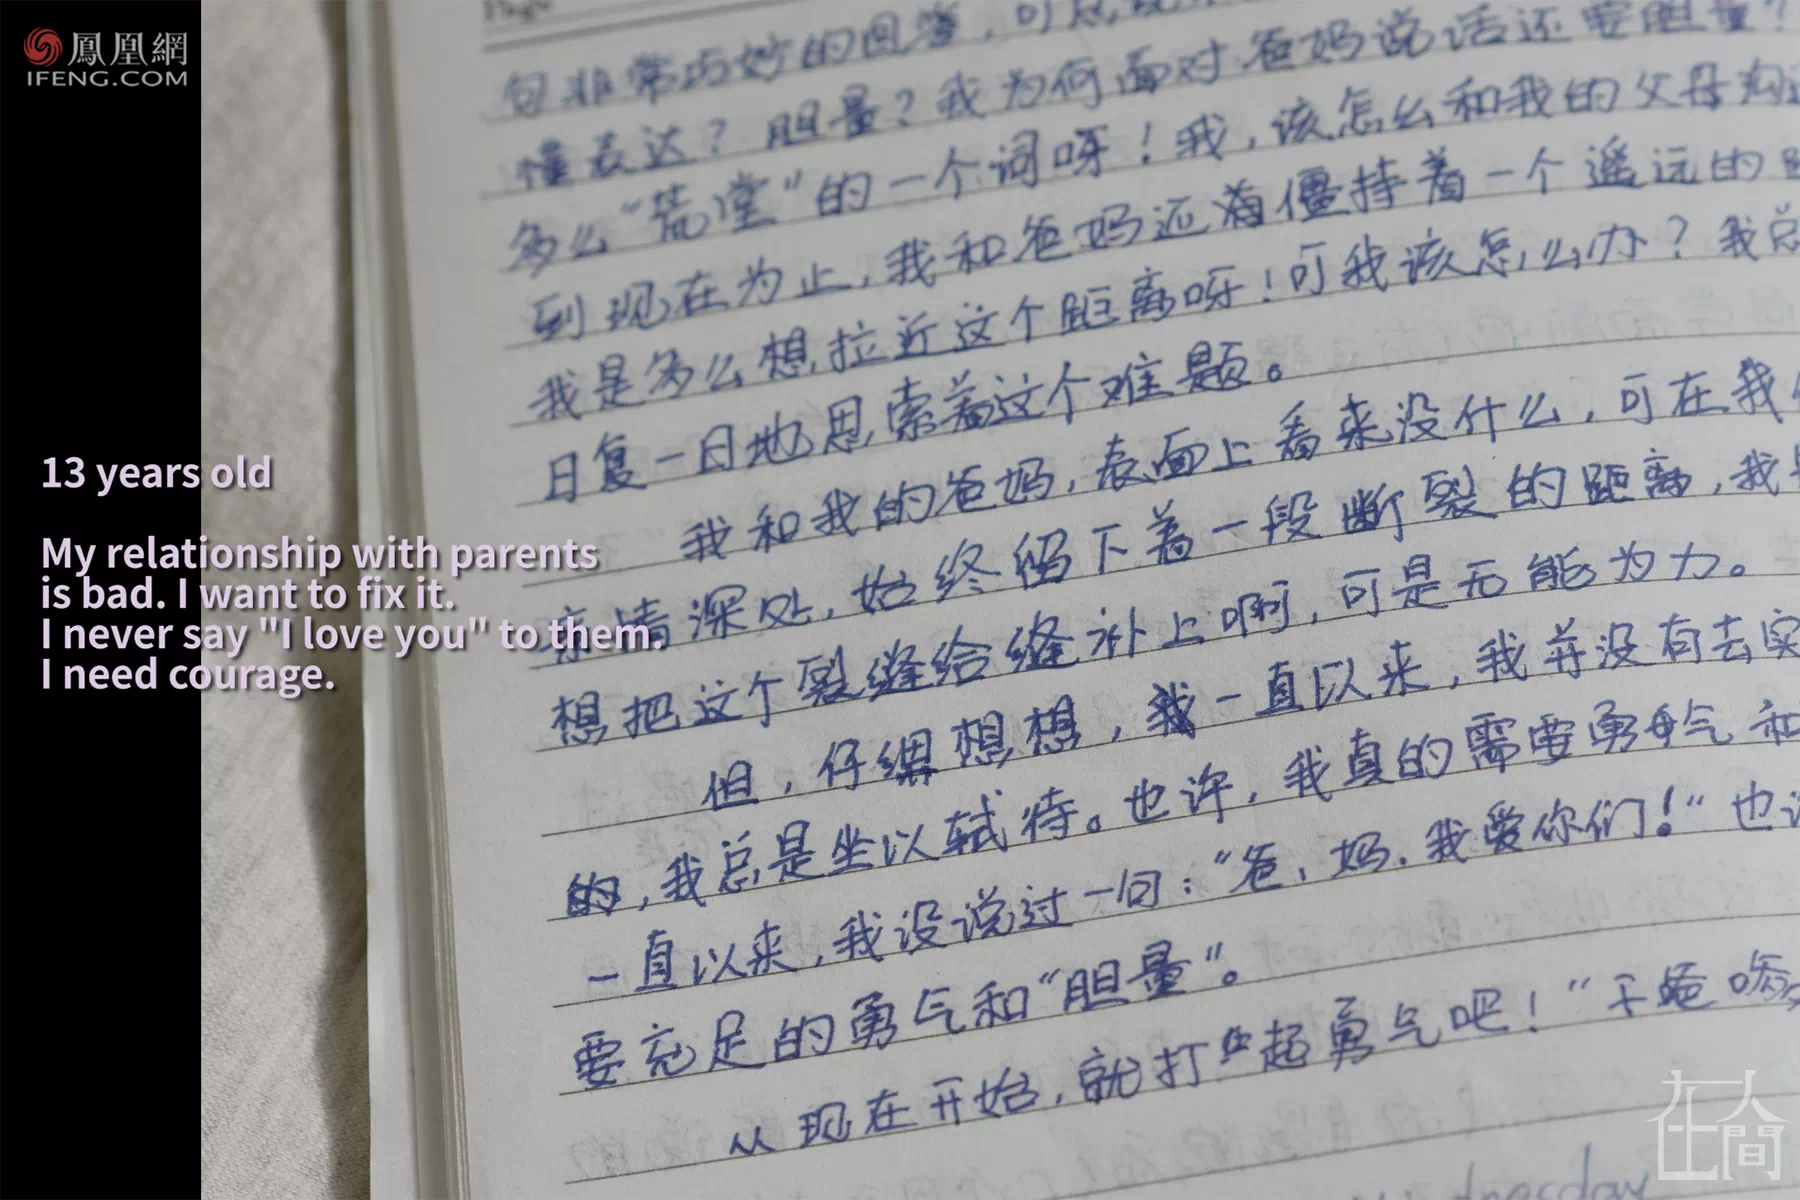 鳳凰網
IFENG.COM
Page
非常巧妙的回答，可总
面对爸妈说话还要胆量？
懂表达？胆量？我为何
多么“荒堂”的一个词呀！我，该怎么和我的父母沟
到现在为止，我和爸妈还着僵持着一个遥远的
我是多么想拉近这个距离呀！可我该怎么办？我总
日复一日地思索着这个难题。
我和我的爸妈，表面上看来没什么，可在我
亲情深处，始终留下着一段断裂的距离，我是
想把这个裂缝给缝补上啊，可是无能为力。
但，仔细想想，我一直以来，我并没有去实
的，我总是坐以轼待。也许，我真的需要勇气和
一直以来，我没说过一句：“爸，妈，我爱你们！”也许
要充足的勇气和“胆量”。
从现在开始，就打起勇气吧！”
13 years old
My relationship with parents
is bad. I want to fix it.
I never say "I love you" to them.
I need courage.
在人間